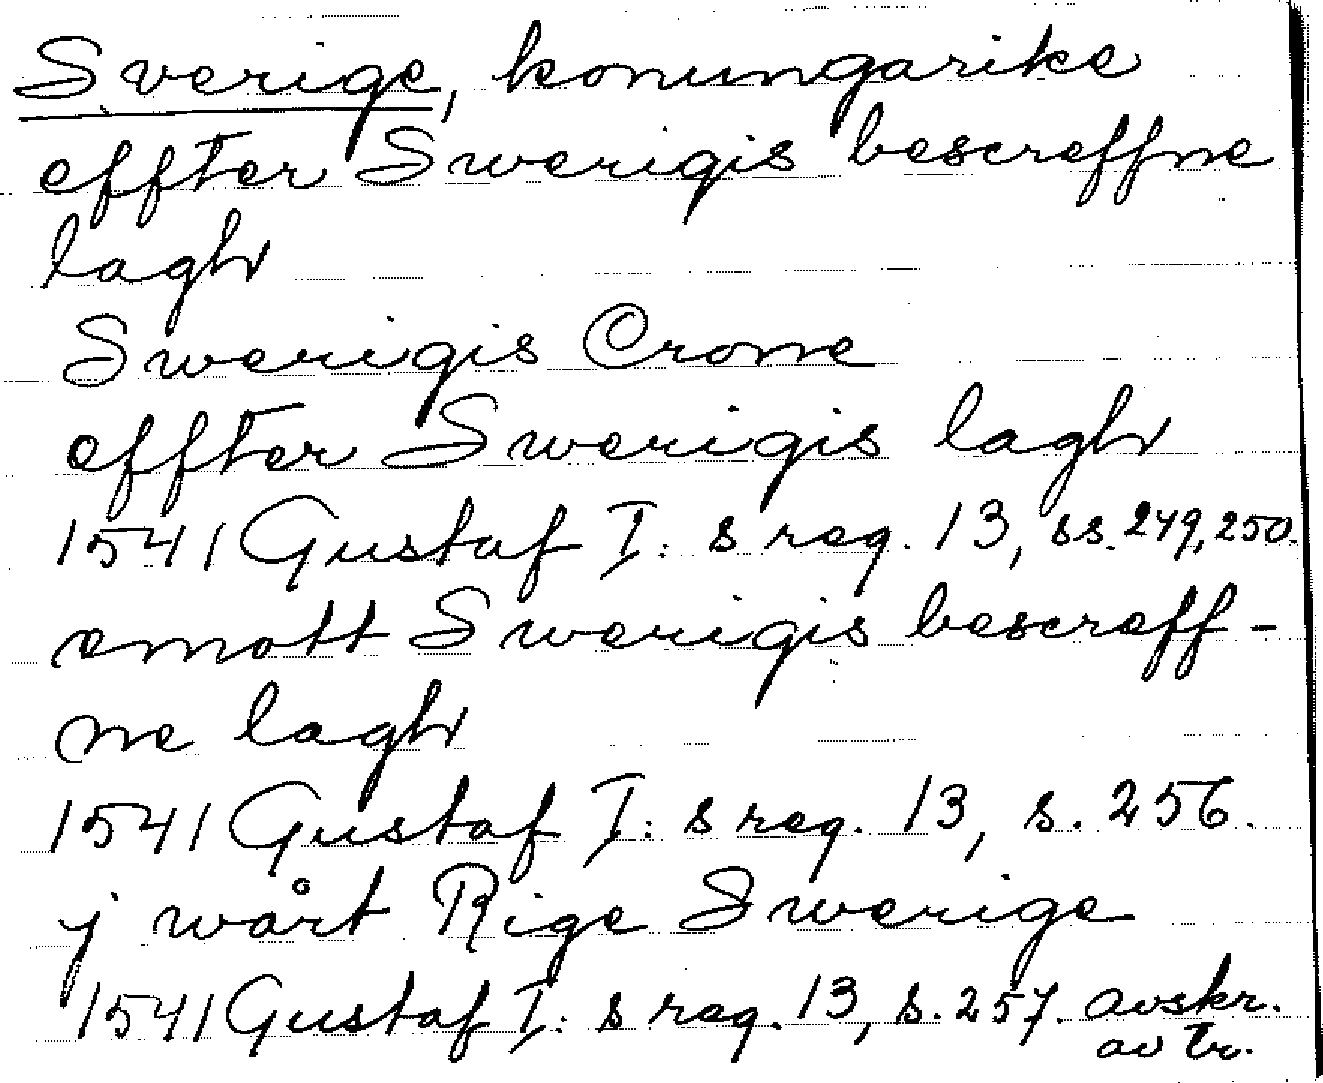 Sverige, konungarike
effter Swerigis bescreffne
lagh
Swerigis Crone
effter Swerigis lagh
1541 Gustaf I:s reg. 13, ss. 249, 250.
emott Swerigis bescreff-
ne lagh
1541 Gustaf I:s reg. 13, s. 256.
j wårt Rige Swerige
1541 Gustaf I:s reg. 13, s. 257. avskr.
av tr.